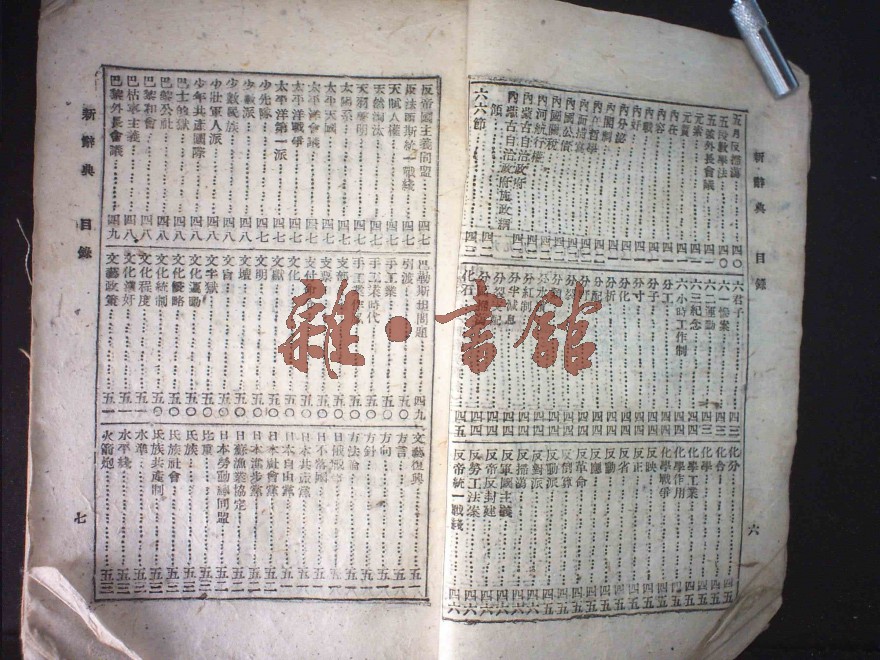 新辭典 目錄 六
五月反掃蕩 四〇
五段教學法 四〇
五國外長會議 四一
元素 四一
元質 四一
內在 四一
內容 四一
內戰
內奸
內分泌
內閣制
內在哲學
內面描寫
內國公債
內國關稅
內河航行權
內蒙古自治政府
內蒙古自治政府施政綱領
六六節 四三
六君子 四三
六一慘案 四三
六二運動 四三
六三紀念
六小時工作制
分工 四四
分子 四四
分寸 四四
分化 四四
分析 四四
分配 四四
分紅制
分半減息
化石 四五
化分 四五
化合 四五
化學 四五
化學工業 四五
化學作用 四五
化學戰爭 四五
反映 四五
反正 四五
反省 四五
反應
反動
反革命
反動派
反對派
反掃蕩 四六
反軍國主義 四六
反帝反封建 四六
反勞工法案 四六
反帝統一戰綫 四六
新辭典 目錄 七
反帝國主義同盟 四七
反法西斯統一戰綫 四七
天賦人權 四七
天然淘汰 四七
天羽聲明 四七
太陽系 四七
太平天國 四七
太平洋會議 四七
太平洋戰爭 四七
太平洋第一派 四七
少先隊 四七
少數派 四八
少數民族 四八
少壯軍人派 四八
少年共產國際 四八
巴士的獄 四八
巴黎公社 四八
巴黎和會 四八
巴枯寧主義 四八
巴黎外長會議 四九
巴勒斯坦問題 四九
引渡 五〇
手工業 五〇
手工業時代 五〇
支部 五〇
支票 五〇
文化 五〇
文獻 五〇
文明 五〇
文壇 五〇
文盲 五〇
文字獄 五〇
文化運動 五〇
文化侵略 五〇
文化統制 五〇
文化程度 五〇
文化漢奸 五一
文藝政策 五一
文藝復興 五一
方言 五一
方向 五一
方針 五一
方法論 五一
日俄戰爭
日本共產黨
日本自由黨
日本社會黨
日本進步黨
日蘇漁業協定
日本勞動總同盟
比重
氏族
氏族社會
氏族共產制
水準
水平綫 五三
火箭炮 五三
雜·書館